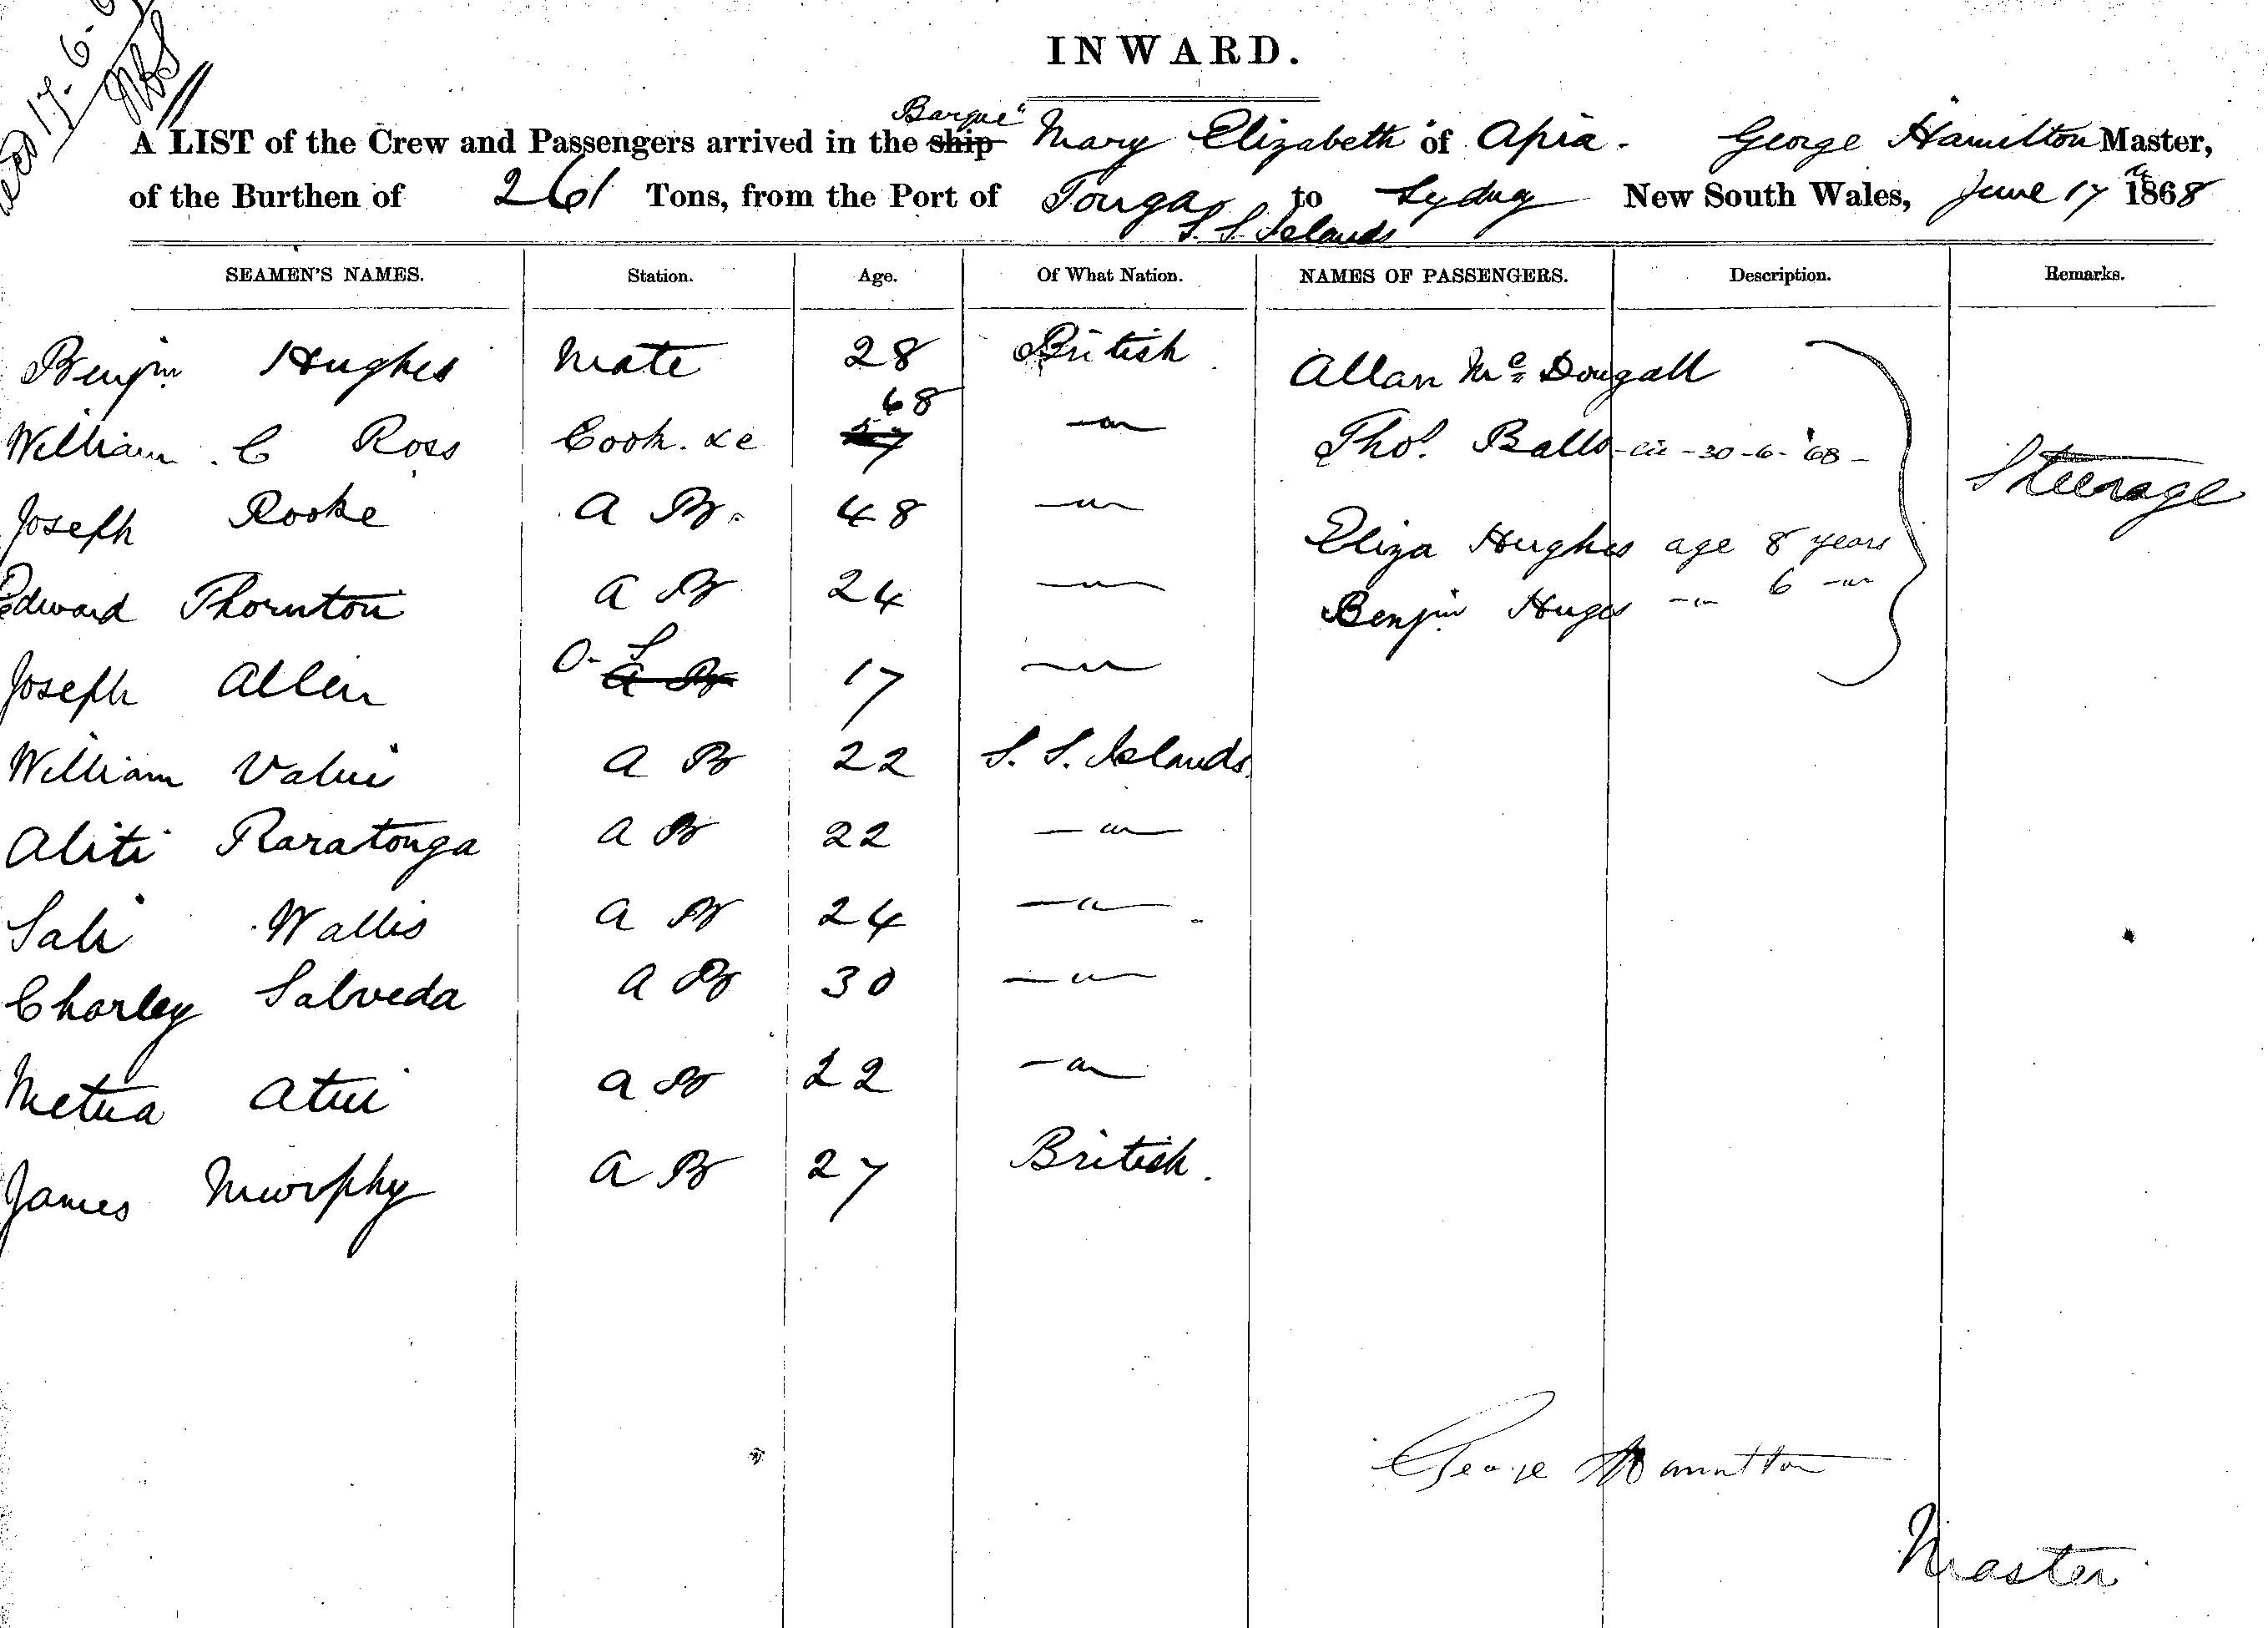 17-6-
INWARD.
Barque
A LIST of the Crew and Passengers arrived in the ship Mary Elizabeth of Apia. George Hamilton Master,
of the Burthen of 261 Tons, from the Port of Tonga to Sydney New South Wales, June 17 1868
S. S. Islands
SEAMEN'S NAMES. Station. Age. Of What Nation. NAMES OF PASSENGERS. Description. Remarks.
Benjm Hughes Mate 28 British Allan McDougall
68
William C Ross Cook &c 57 —"— Thos. Balls - 30-6-'68 - Steerage
Joseph Rooke A B. 48 —"—
Eliza Hughes age 8 years
Edward Thornton A B 24 —"— Benjm Huges —"— 6 —"—
O. S
Joseph Allen A B 17 —"—
William Valui A B 22 S. S. Islands.
Aliti Raratonga A B 22 —"—
Sali Wallis A B 24 —"—
Charley Salveda A B 30 —"—
Metua Atui A B 22 —"—
James Murphy A B 27 British.
George Hamilton
Master